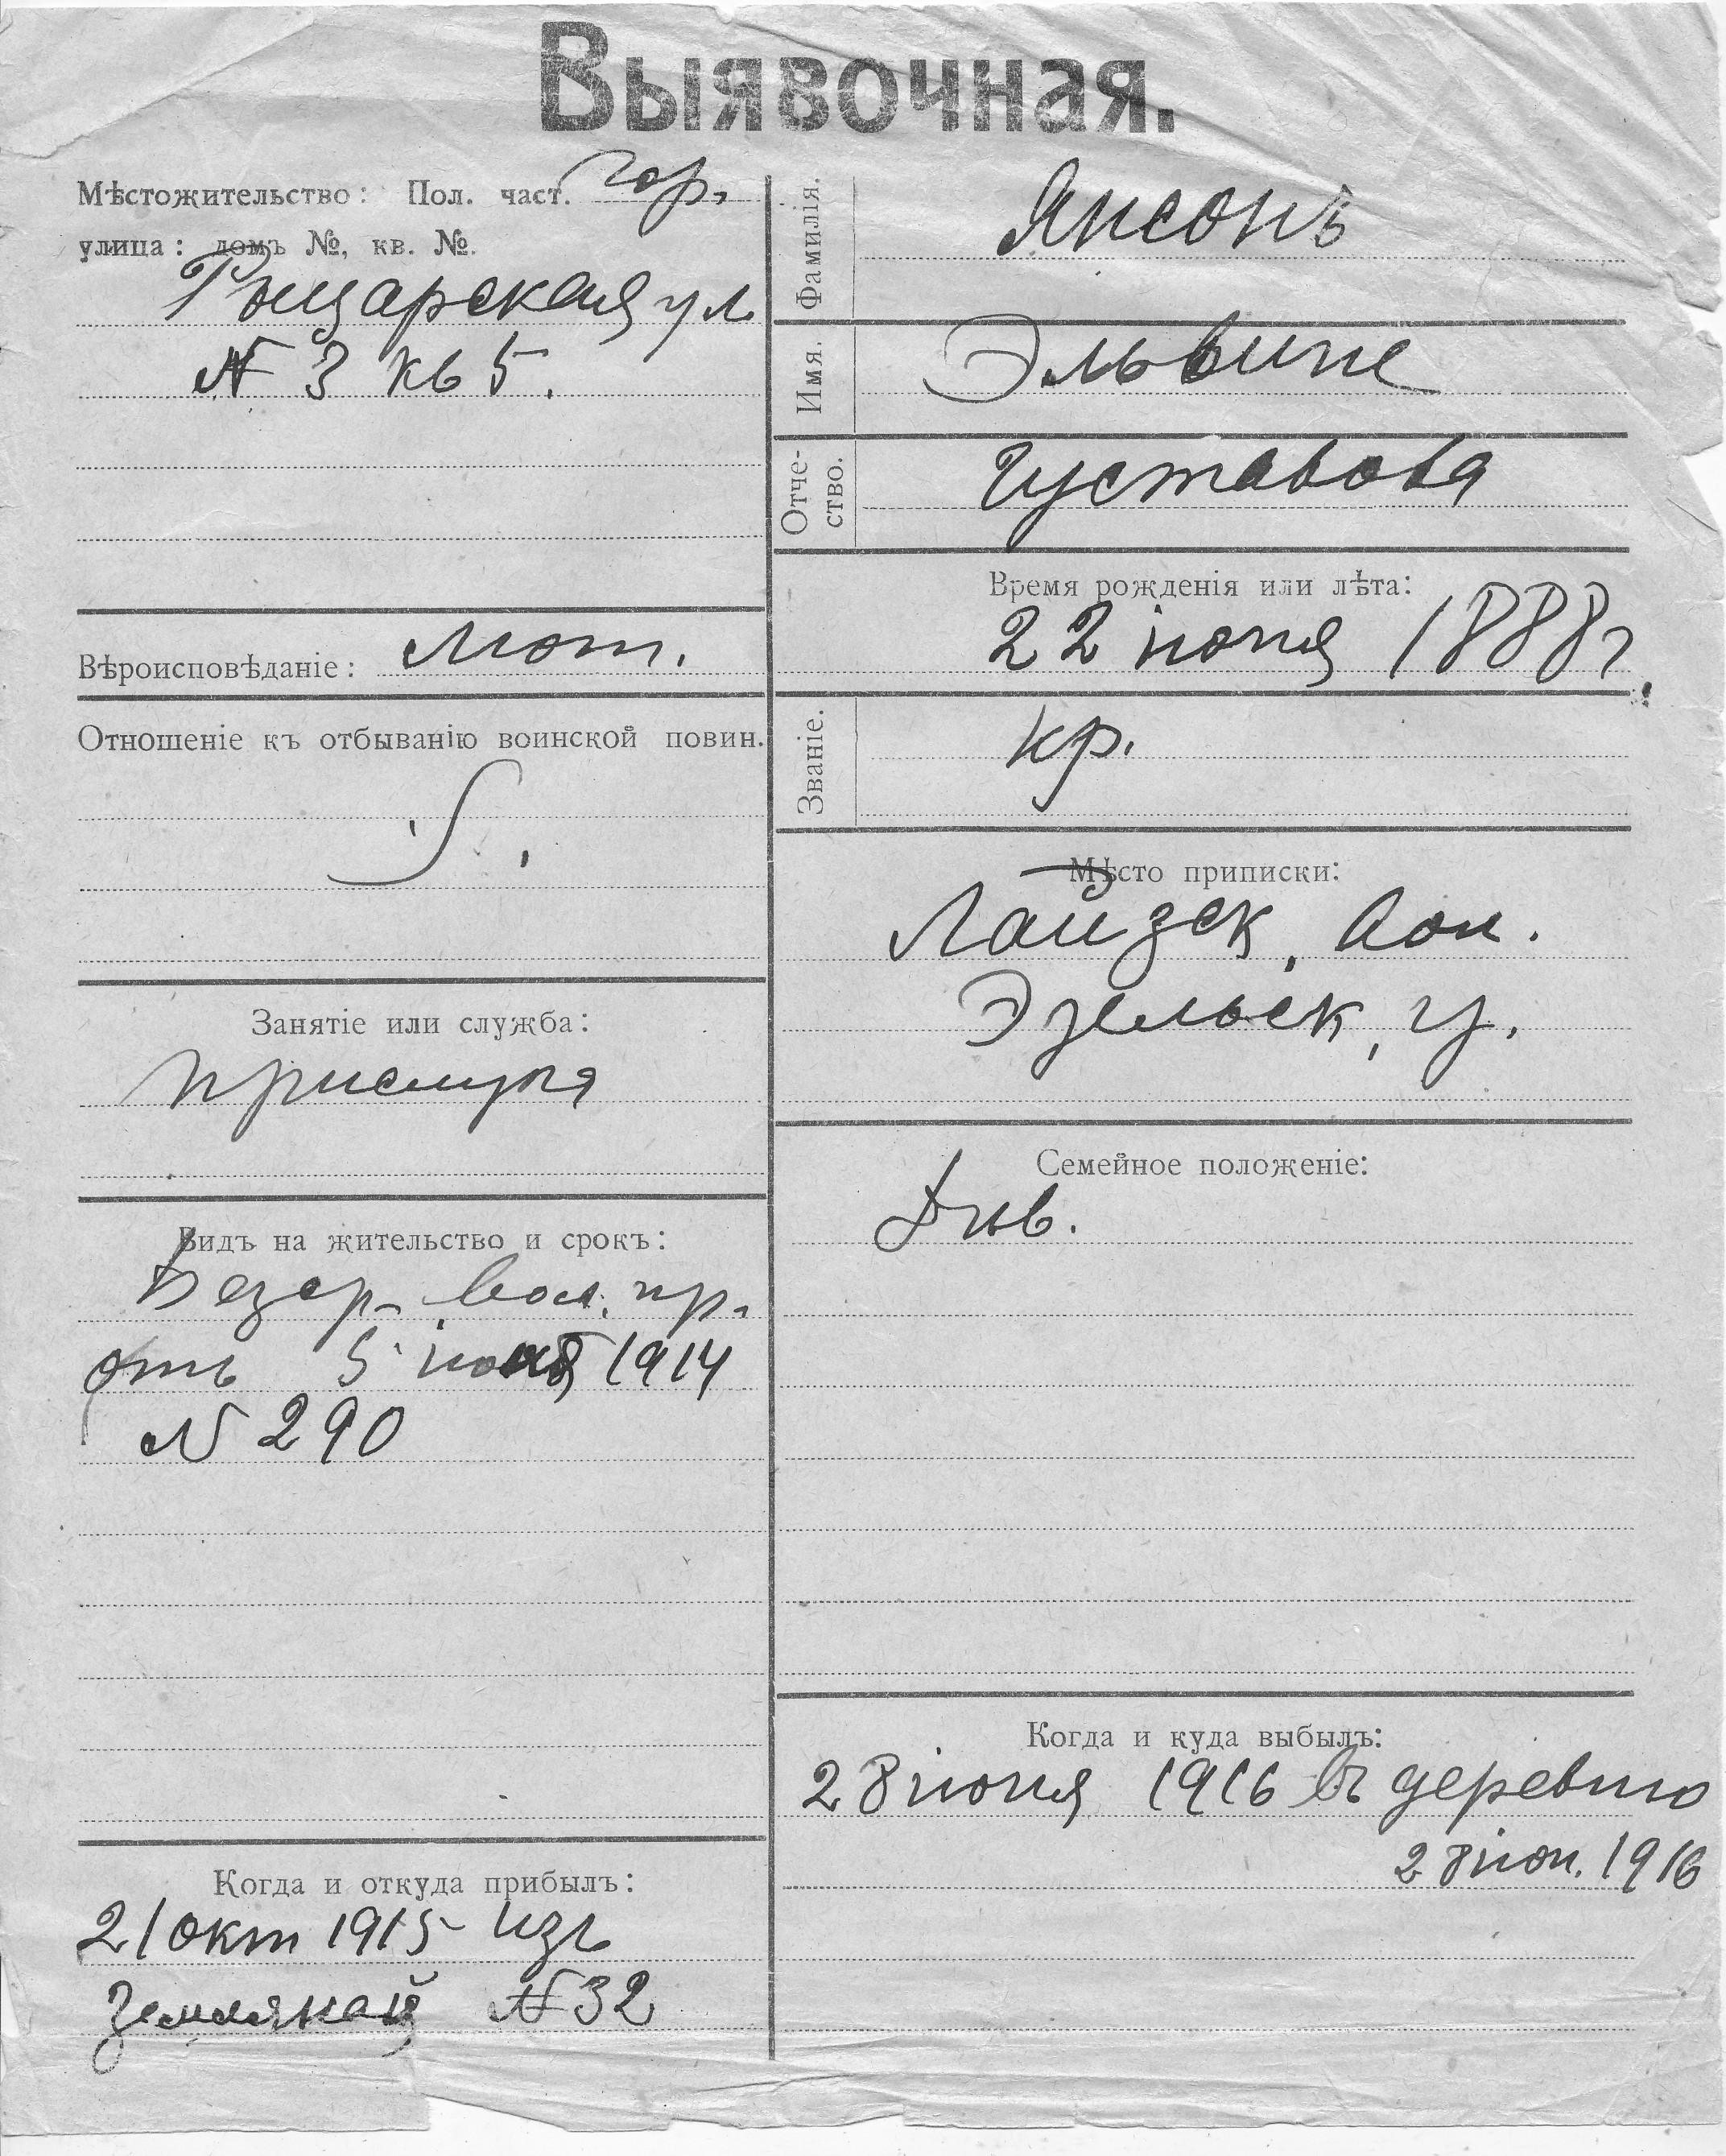 Выявочная.
Мѣстожительство: Пол. част. гор.
улица: домъ №, кв. №.
Рыцарская ул
№ 3 кв 5.
Вѣроисповѣданіе: лют.
Отношеніе къ отбыванію воинской повин.
Занятіе или служба:
прислуга
Видъ на жительство и срокъ:
безср. вол. пр.
отъ 5 1914
N 290
Когда и откуда прибылъ:
21 окт 1915 изъ
Земляной № 32
Фамилія.
Янсонъ
Имя.
Эльвине
Отче-
ство.
Густавова
Время рожденія или лѣта:
22 іюня 1888 г.
Званіе.
кр.
Мѣсто приписки:
Лайзск, вол.
Эзельск, у.
Семейное положеніе:
Дѣв.
Когда и куда выбылъ:
28 іюня 1916 въ деревню
28 іюн. 1916